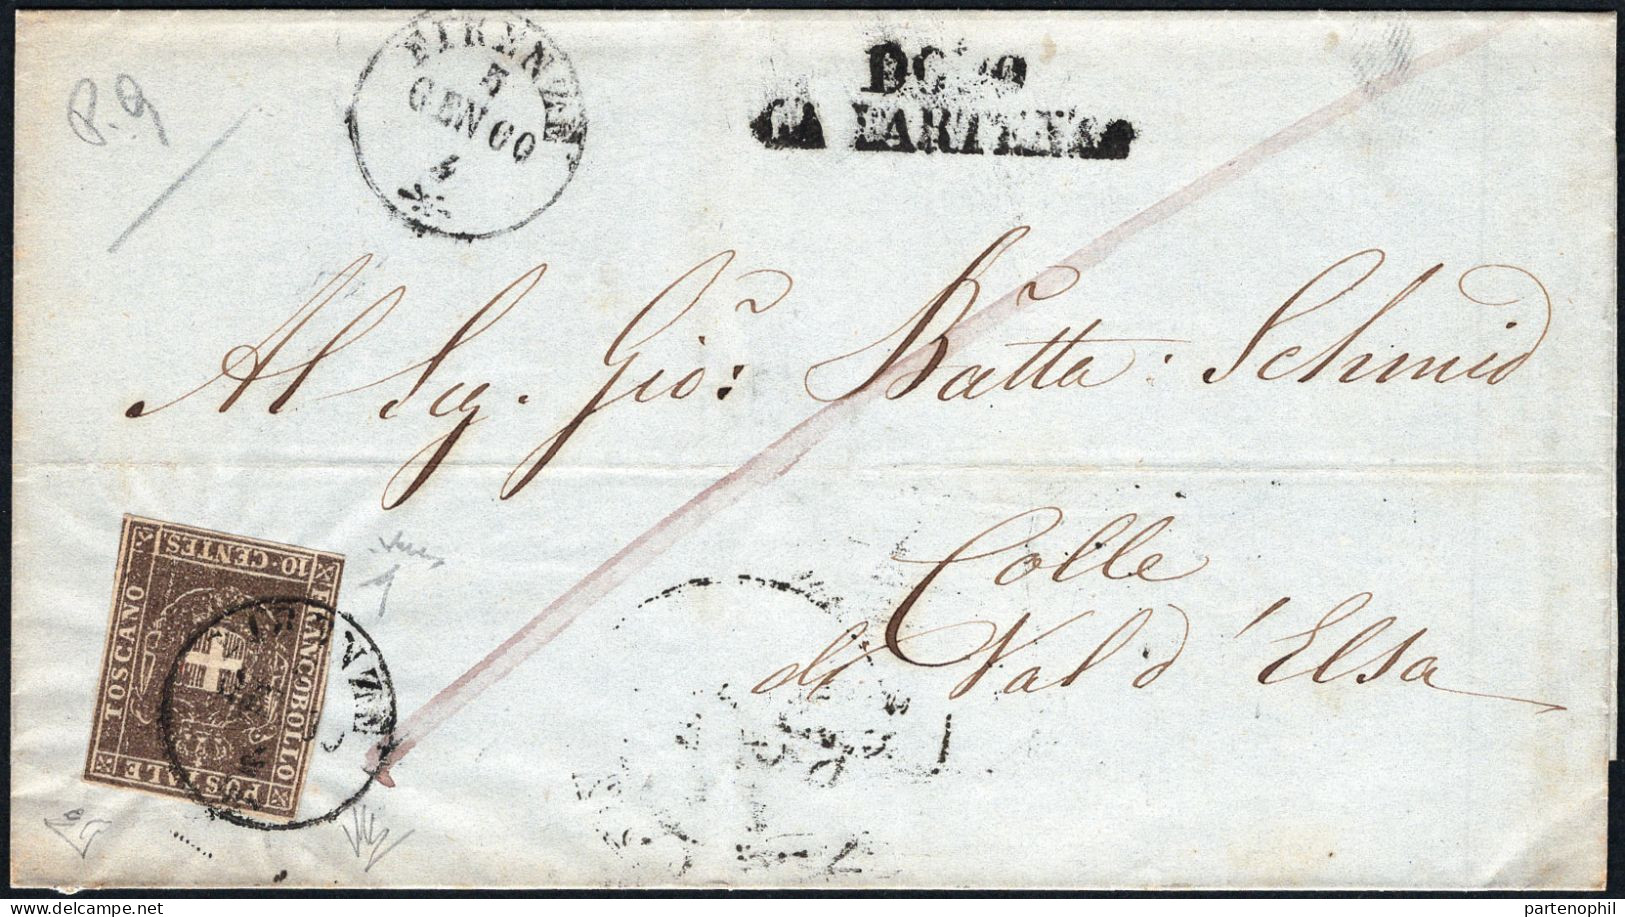 P. 9
FIRENZE
5
GEN 60
4
DOPO
LA PARTENZA
Al Sig. Gio: Batta: Schmid
Colle
di Val d'Elsa
10 · CENTES
FRANCOBOLLO
POSTALE
TOSCANO
FIRENZE
partenophil